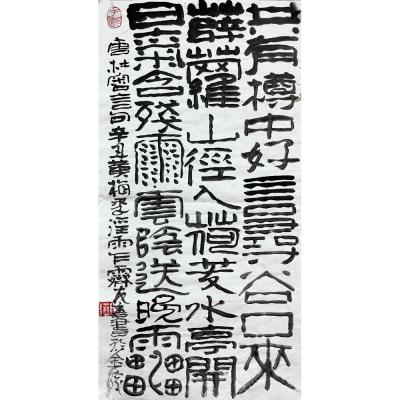 共有樽中好言尋谷口來
薜蘿山徑入荷芰水亭開
日氣含殘雨雲陰送晚雷
唐杜審言句辛丑黃梅季淫雨